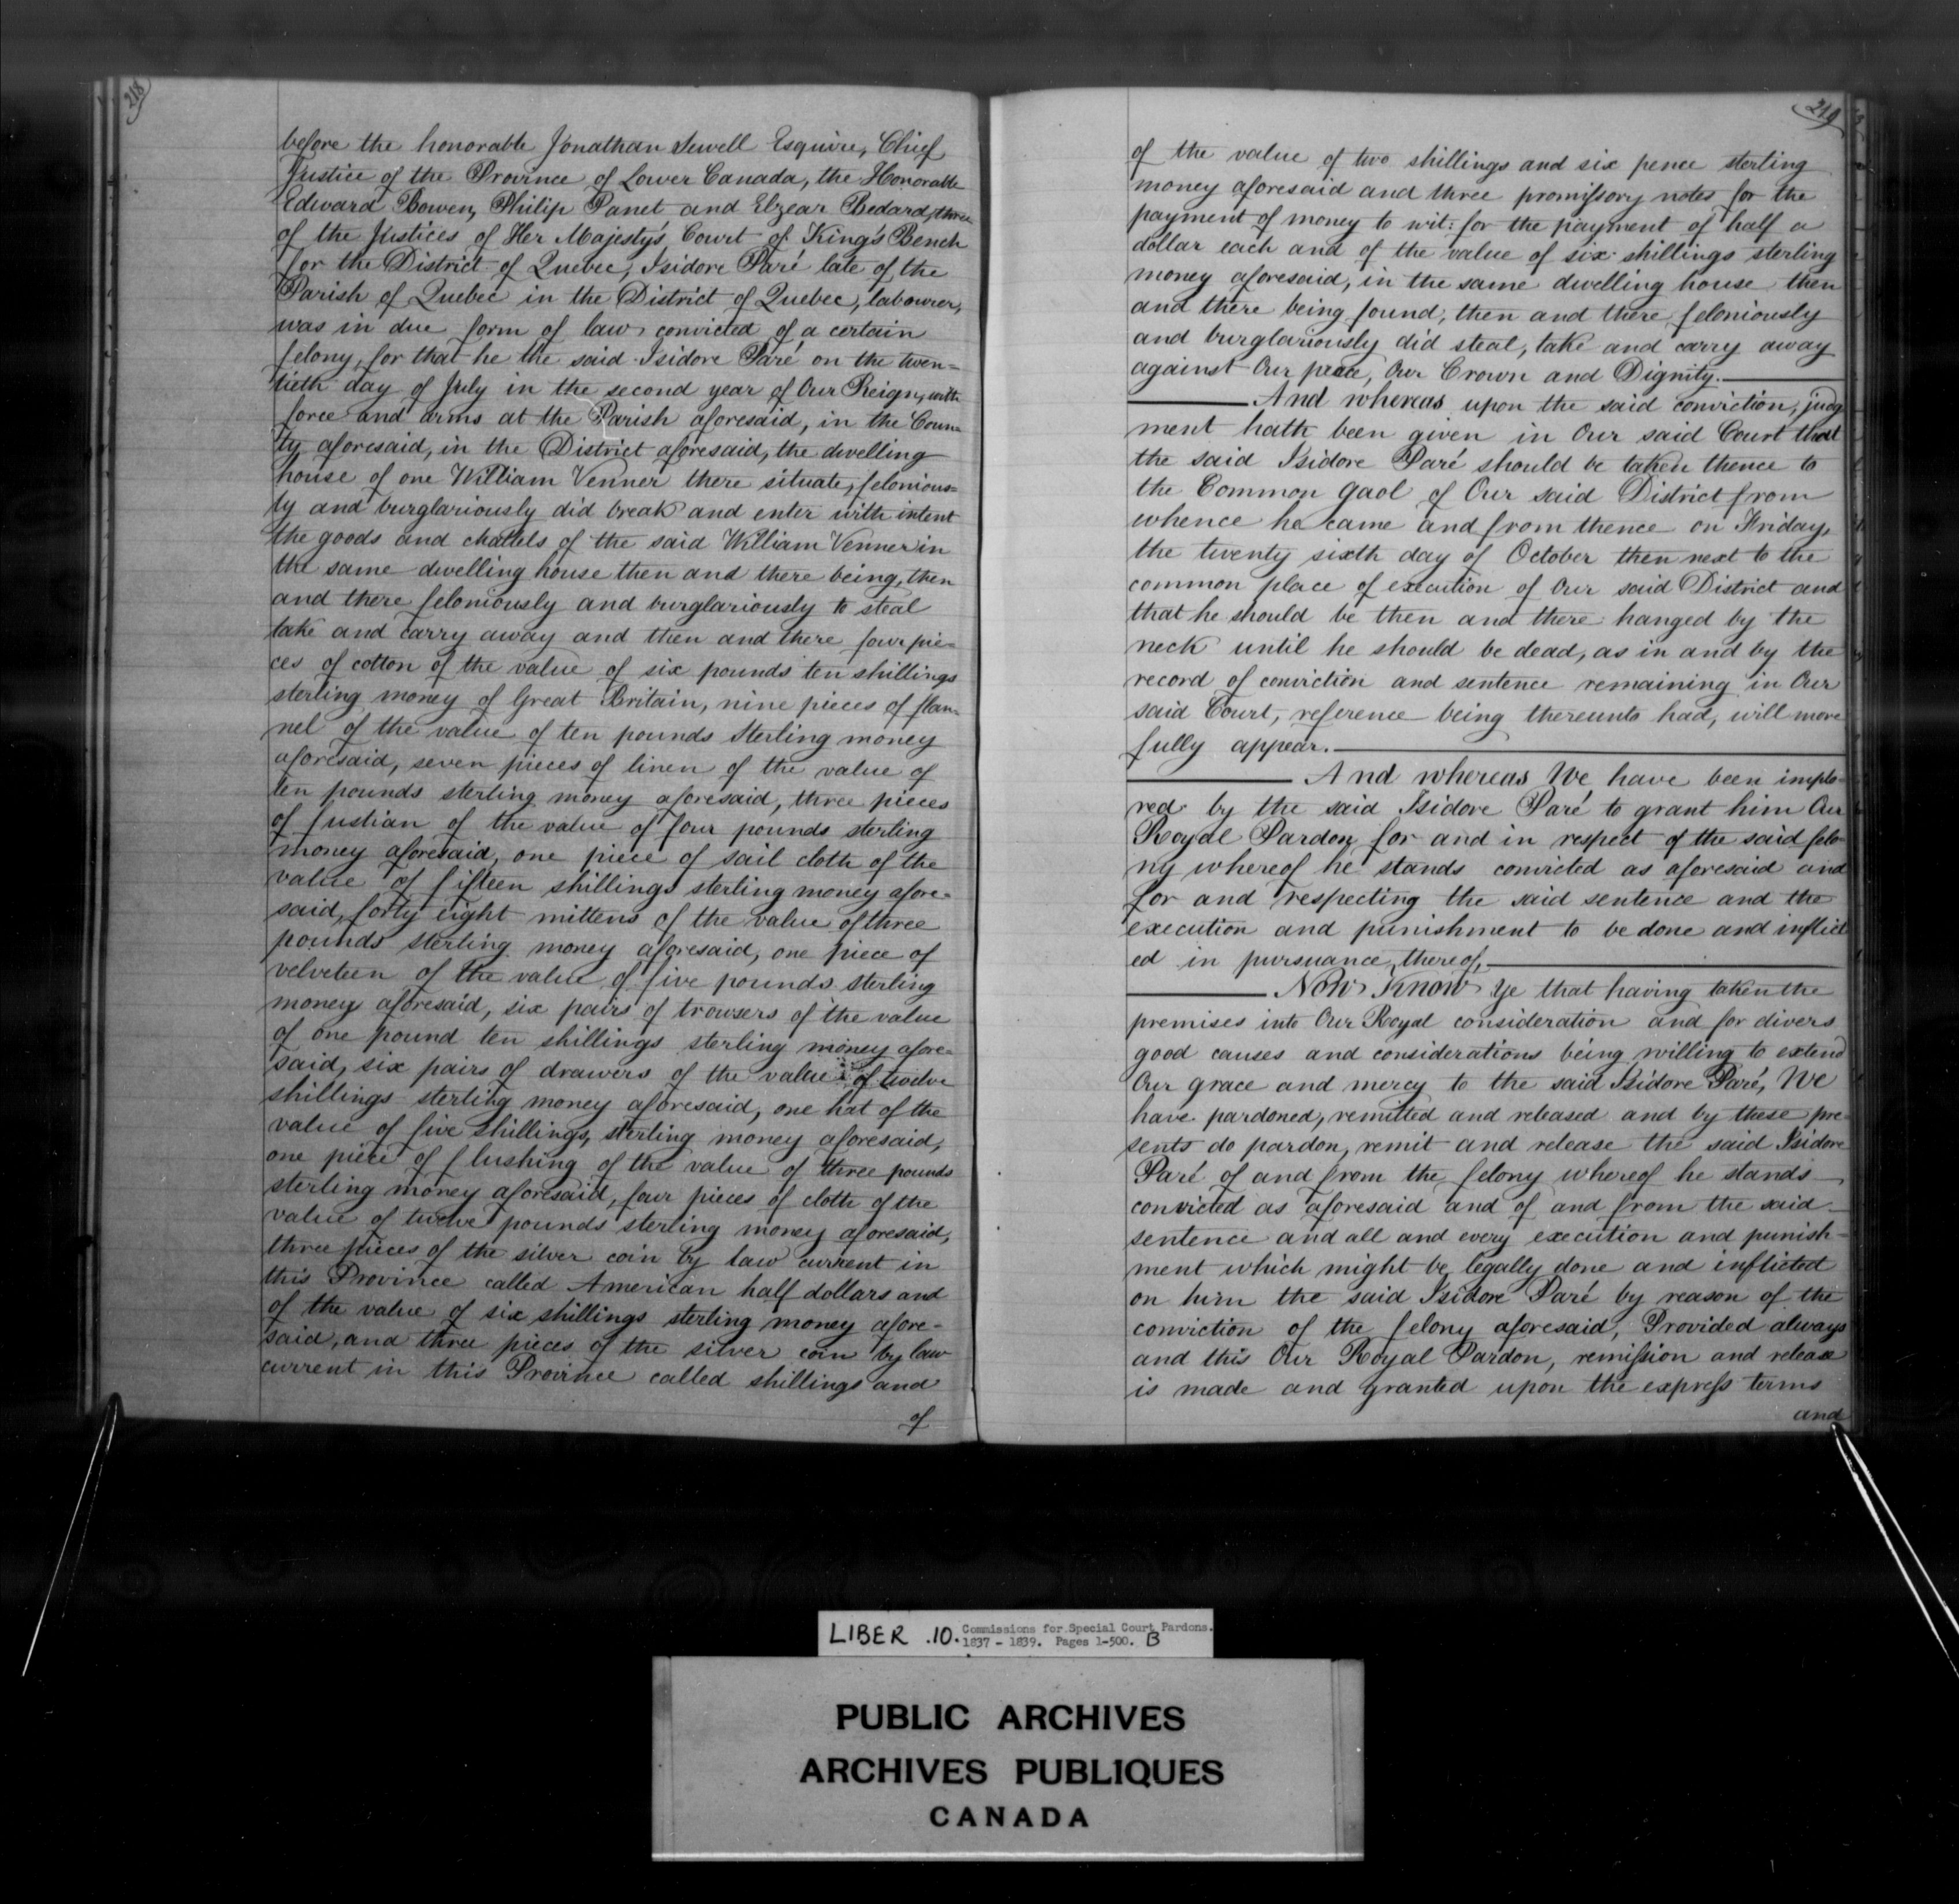 218
before the honorable Jonathan Sewell Esquire, Chief
Justice of the Province of Lower Canada, the Honorable
Edward Bowen, Philip Panet and Elzear Bedard, three
of the Justices of Her Majesty's Court of King's Bench
for the District of Quebec, Isidore Paré late of the
Parish of Quebec in the District of Quebec, labourer,
was in due form of law convicted of a certain
felony, for that he the said Isidore Paré on the twen=
tieth day of July in the second year of Our Reign, with
force and arms at the Parish aforesaid, in the Coun=
ty aforesaid, in the District aforesaid, the dwelling
house of one William Venner there situate, felonious=
ly and burglariously did break and enter with intent
the goods and chattels of the said William Venner in
the same dwelling house then and there being, then
and there feloniously and burglariously to steal
take and carry away and then and there four pie=
ces of cotton of the value of six pounds ten shillings
sterling money of Great Britain, nine pieces of flan=
nel of the value of ten pounds Sterling money
aforesaid, seven pieces of linen of the value of
ten pounds sterling money aforesaid, three pieces
of fustian of the value of four pounds sterling
money aforesaid, one piece of sail cloth of the
value of fifteen shillings sterling money afore=
said, forty eight mittens of the value of three
pounds sterling money aforesaid, one piece of
velveteen of the value of five pounds sterling
money aforesaid, six pairs of trowsers of the value
of one pound ten shillings sterling money afore=
said, six pairs of drawers of the value of twelve
shillings sterling money aforesaid, one hat of the
value of five shillings, sterling money aforesaid,
one piece of flushing of the value of three pounds
sterling money aforesaid, four pieces of cloth of the
value of twelve pounds sterling money aforesaid,
three pieces of the silver coin by law current in
this Province called American half dollars and
of the value of six shillings sterling money afore-
said, and three pieces of the silver coin by law
current in this Province called shillings and
of
219
of the value of two shillings and six pence sterling
money aforesaid and three promissory notes for the
payment of money to wit: for the payment of half a
dollar each and of the value of six shillings sterling
money aforesaid, in the same dwelling house then
and there being found, then and there feloniously
and burglariously did steal, take and carry away
against Our peace, Our Crown and Dignity.
And whereas upon the said conviction, judg
ment hath been given in Our said Court that
the said Isidore Paré should be taken thence to
the Common gaol of Our said District from
whence he came and from thence on Friday,
the twenty sixth day of October then next to the
common place of execution of Our said District and
that he should be then and there hanged by the
neck until he should be dead, as in and by the
record of conviction and sentence remaining in Our
said Court, reference being thereunto had, will more
fully appear.
And whereas We have been implo-
red by the said Isidore Paré to grant him Our
Royal Pardon for and in respect of the said felo-
ny whereof he stands convicted as aforesaid and
for and respecting the said sentence and the
execution and punishment to be done and inflict
ed in pursuance thereof,
Now Know Ye that having taken the
premises into Our Royal consideration and for divers
good causes and considerations being willing to extend
Our grace and mercy to the said Isidore Paré, We
have pardoned, remitted and released and by these pre-
sents do pardon, remit and release the said Isidore
Paré of and from the felony whereof he stands
convicted as aforesaid and of and from the said
sentence and all and every execution and punish-
ment which might be legally done and inflicted
on him the said Isidore Paré by reason of the
conviction of the felony aforesaid, Provided always
and this Our Royal Pardon, remission and release
is made and granted upon the express terms
and
LIBER .10. Commissions for Special Court Pardons.
1837 - 1839. Pages 1-500. B
PUBLIC ARCHIVES
ARCHIVES PUBLIQUES
CANADA